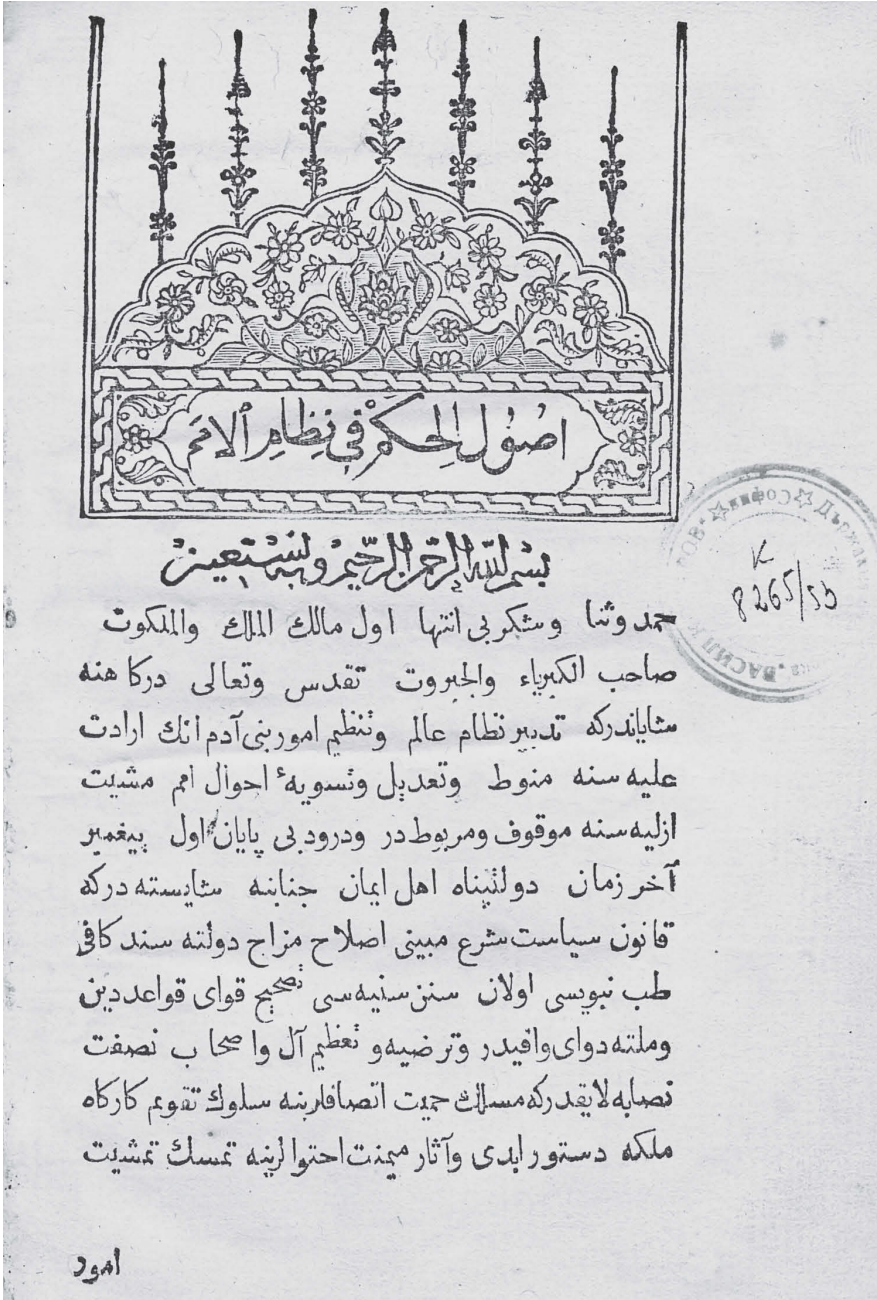 اصول الحكم في نظام الامم
بسم الله الرحمن الرحيم وبه نستعين
حمد وثنا وشكر بى انتها اول مالك الملك والملكوت
صاحب الكبرياء والجبروت تقدس وتعالى دركاهنه
شاياندركه تدبير نظام عالم وتنظيم امور بنى آدم انك ارادت
عليه سنه منوط وتعديل وتسويهٔ احوال امم مشيت
ازليه سنه موقوف ومربوط در ودرود بى پايان اول پيغمبر
آخر زمان دولتپناه اهل ايمان جنابنه شايسته دركه
قانون سياست شرع مبينى اصلاح مزاج دولته سند كافى
طب نبويسى اولان سنن سنيه سى تصحيح قواى قواعد دين
وملته دواى وافيدر وترضيه و تعظيم آل واصحاب نصفت
نصابه لايقدركه مسالك حميت اتصافلرينه سلوك تقويم كاركاه
ملكه دستور ابدى وآثار ميمنت احتوالرينه تمسك تمشيت
امور
☆ София ☆ Държавна
ВАСИЛ К
ОВ"
К
8265/53